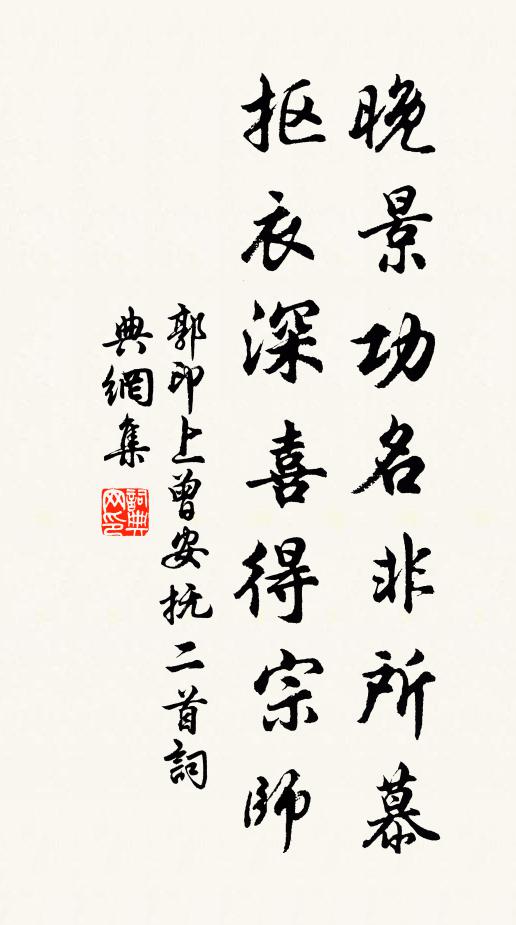 晚景功名非所慕
抠衣深喜得宗師
郭印上曾安抚二首詞
典網集
詞典网印